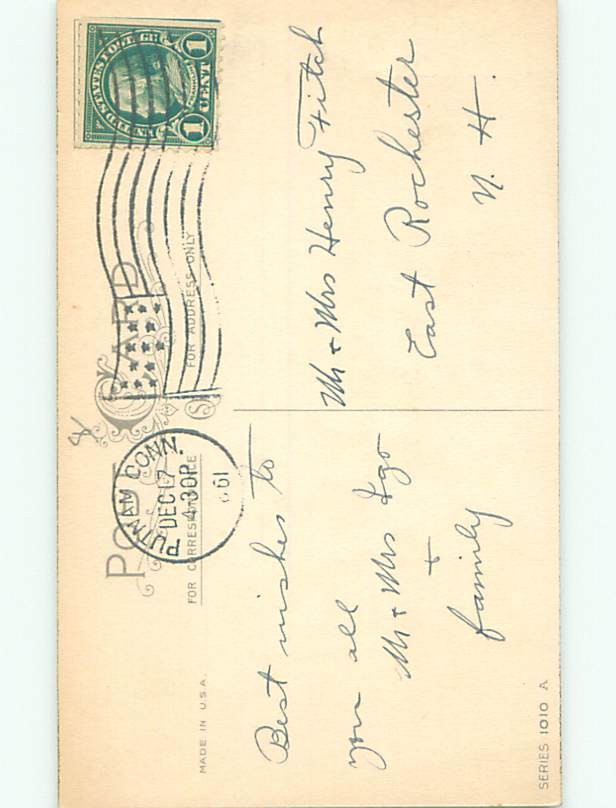 POST CARD
MADE IN U.S.A.
FOR CORRESPONDENCE
FOR ADDRESS ONLY
PUTNAM CONN.
DEC 17
4-30P
UNITED STATES POSTAGE
1 CENT 1
Best wishes to
you all
Mr & Mrs Igo
+
family
Mr & Mrs Henry Fitch
East Rochester
N. H.
SERIES 1010 A